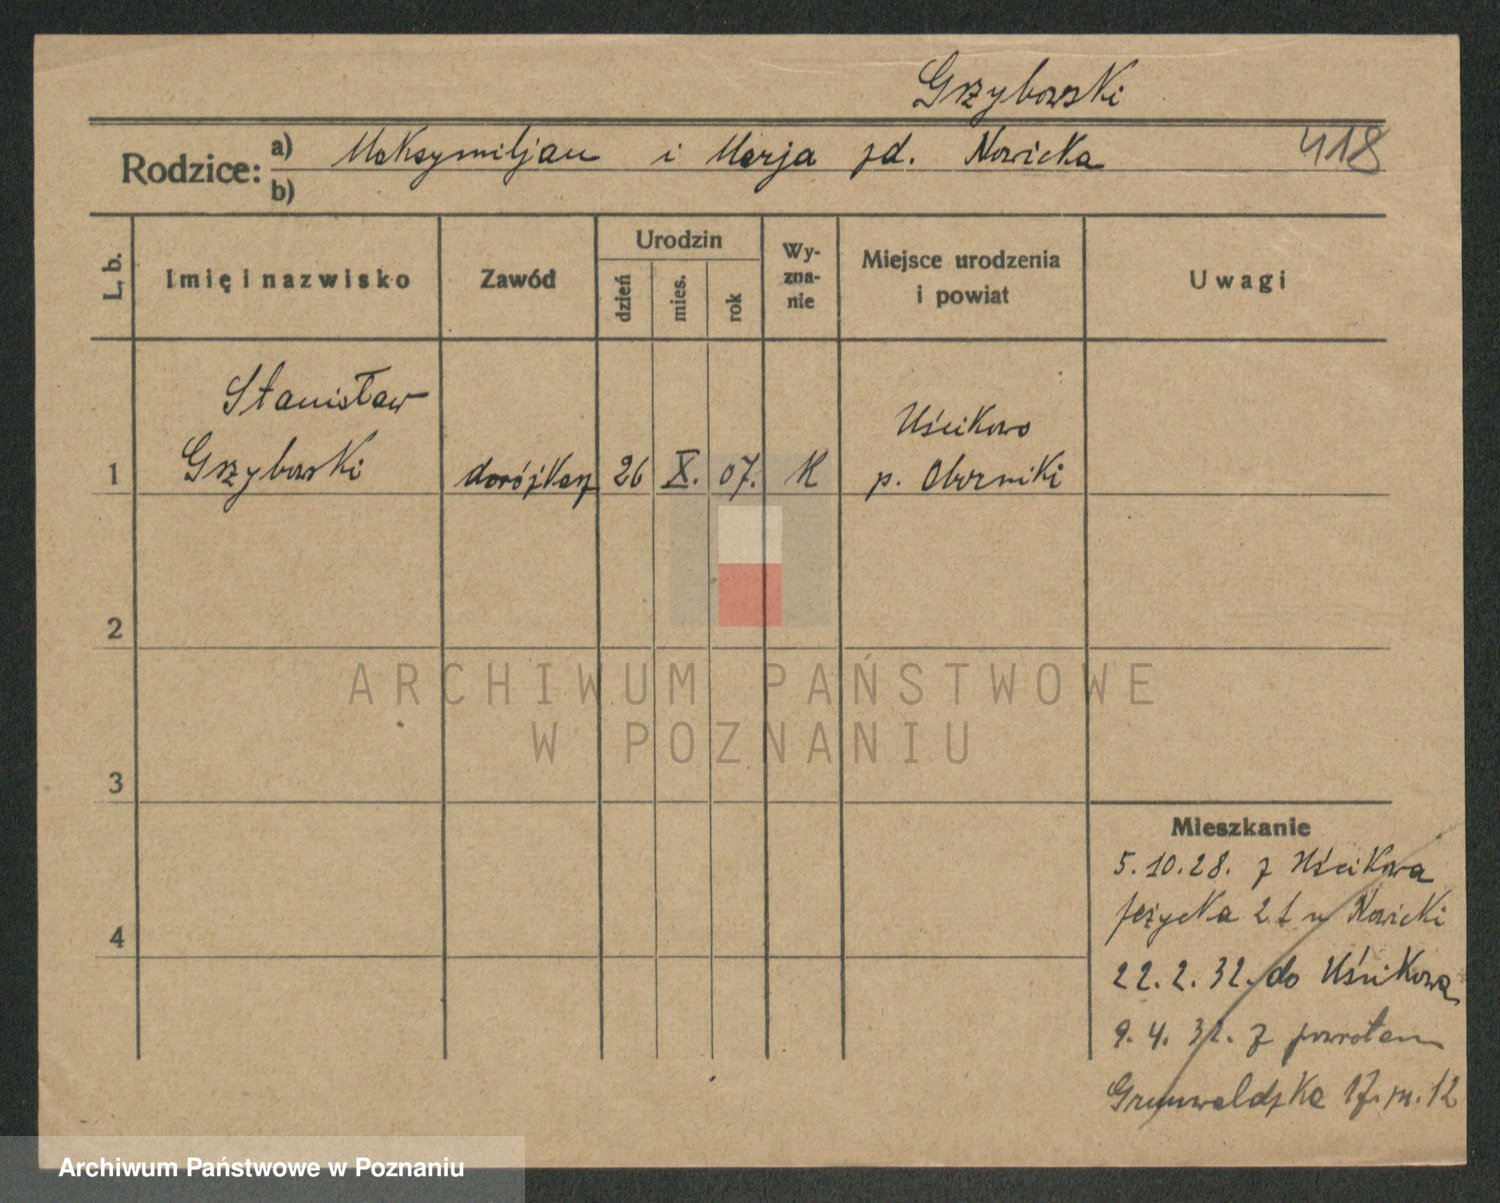 Grzybowski
Rodzice: a) Maksymiljan i Marja zd. Nowicka 418
b)
L. b. Imię i nazwisko Zawód Urodzin dzień mies. rok Wy-zna-nie Miejsce urodzenia i powiat Uwagi
Stanisław Uścikowo
1 Grzybowski dorożkarz 26 X. 07. K p. Oborniki
2
ARCHIWUM PAŃSTWOWE
W POZNANIU
3
Mieszkanie
5.10.28. z Uścikowa
Jeżycka 2 Nowicki
4
22.2.32. do Uścikowa
9.4.32. z powrotem
Grunwaldzka 17. m. 12
Archiwum Państwowe w Poznaniu